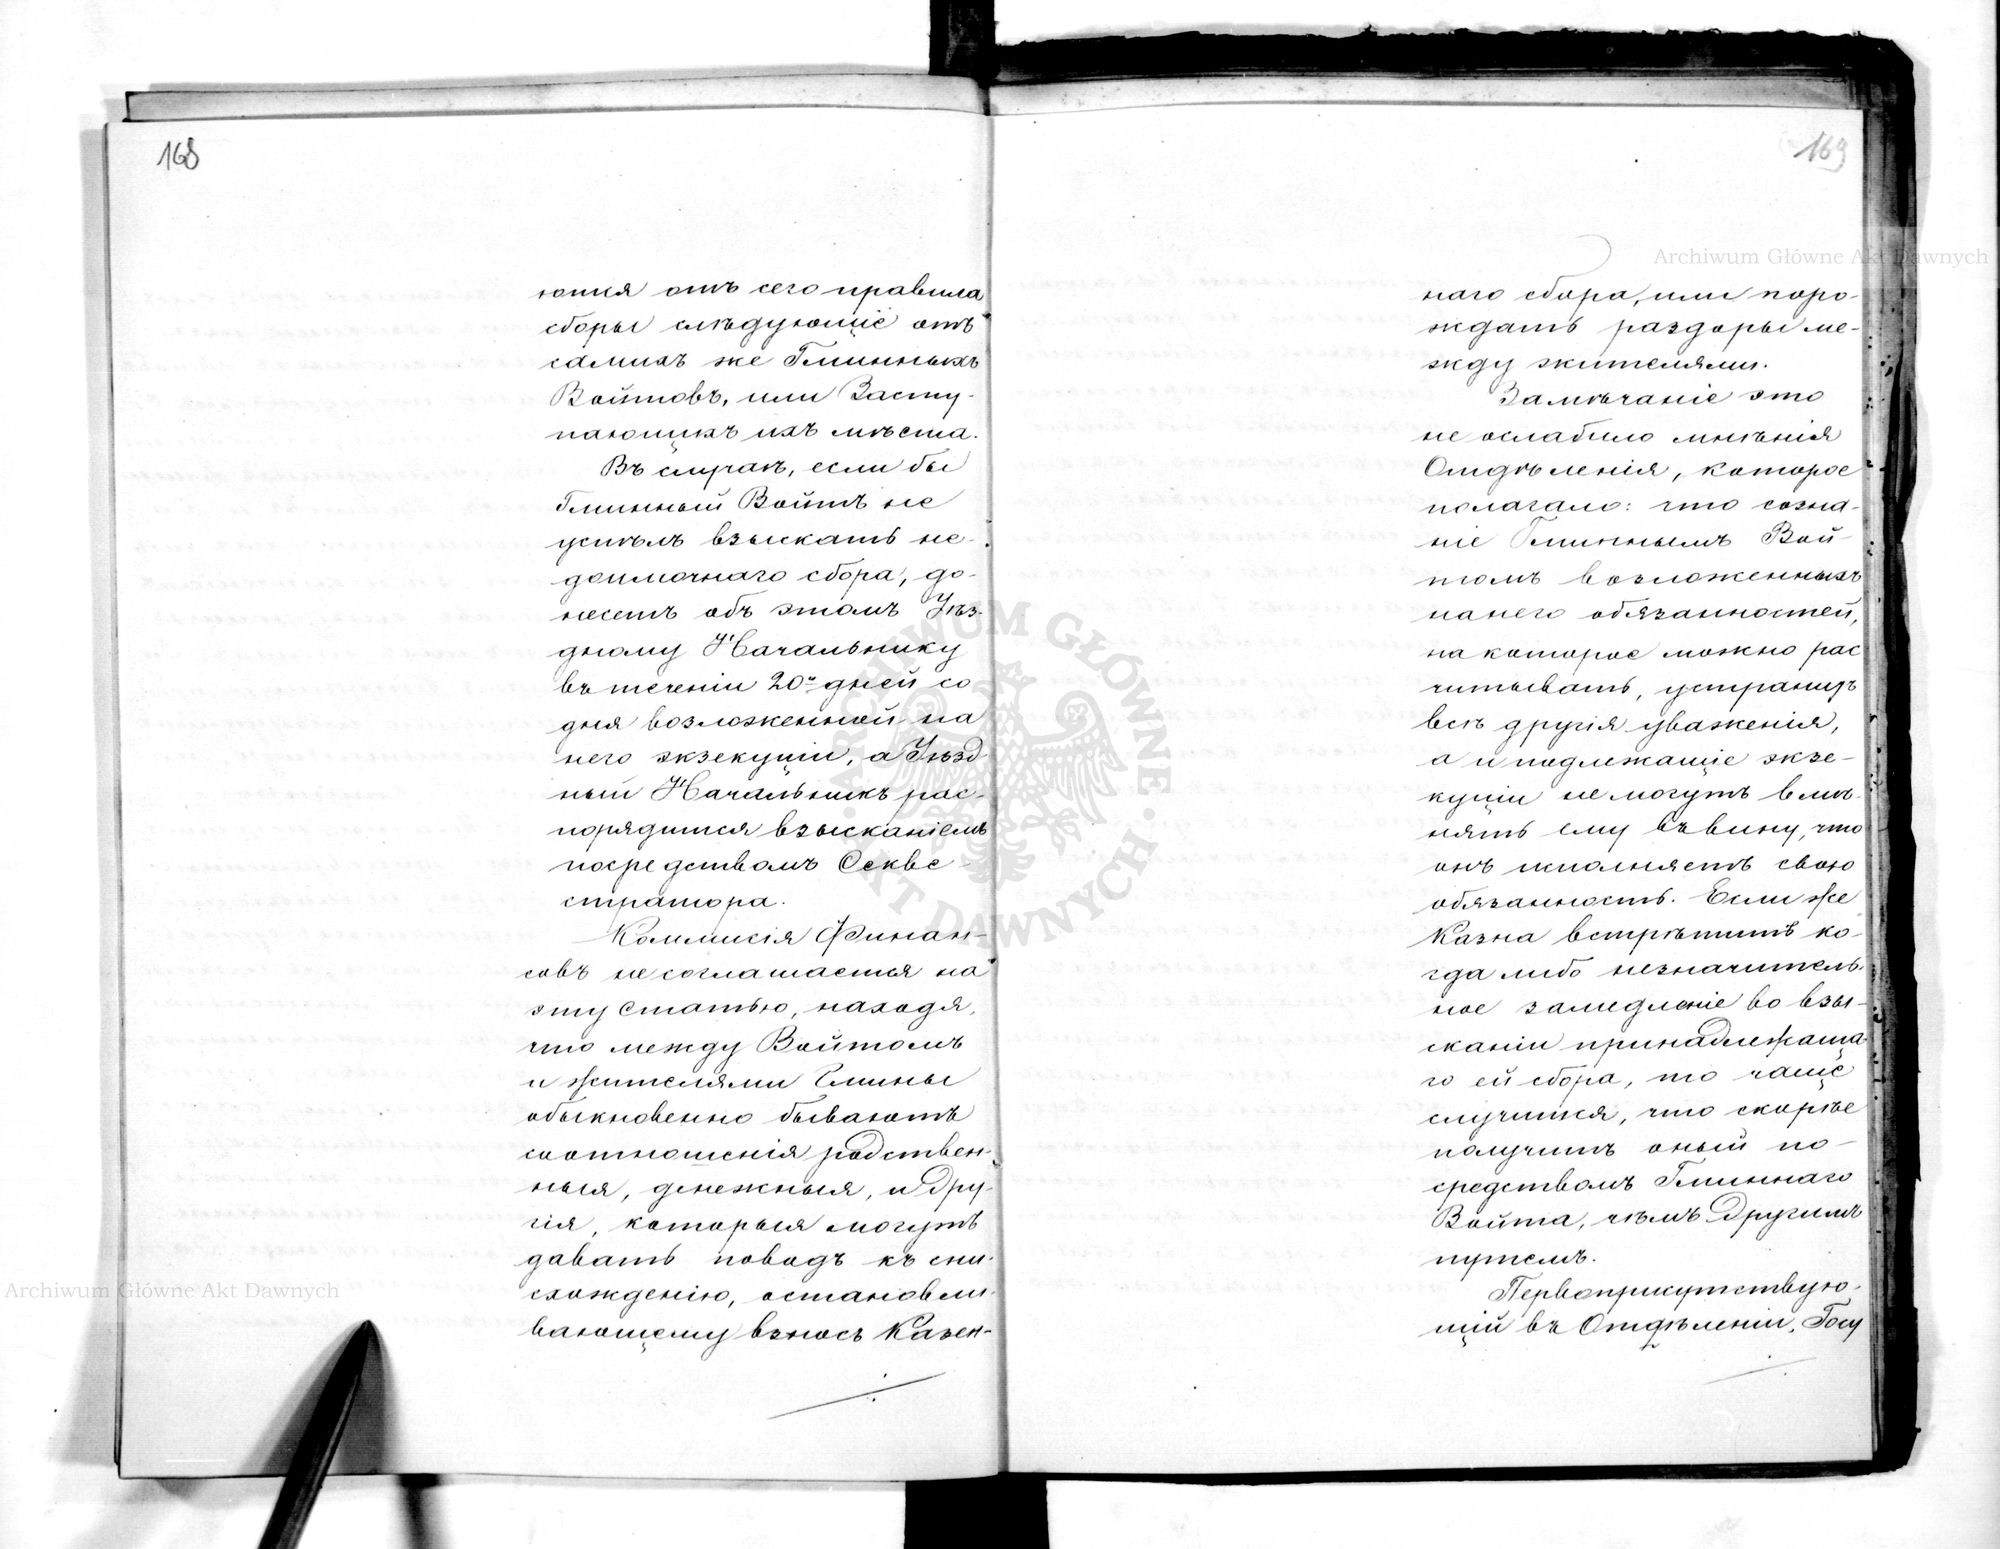 168
ются отъ сего правила
сборы слѣдующіе отъ
самихъ же Гминныхъ
Войтовъ, или Засту-
пающихъ ихъ мѣста.
Въ случаѣ, если бы
Гминный Войтъ не
успѣлъ взыскать не-
доимочнаго сбора, до-
несетъ объ этомъ Уѣз-
дному Начальнику
въ теченіи 20и дней со
дня возложенной на
него экзекуціи, а Уѣзд
ный Начальникъ рас-
порядится взысканіемъ
посредствомъ Секве-
стратора.
Коммисія Финан-
совъ не соглашается на
эту статью, находя,
что между Войтомъ
и жителями Гмины
обыкновенно бываютъ
соотношенія родствен-
ныя, денежныя, и дру-
гія, которыя могутъ
давать поводъ къ сни-
схожденію, остановли-
вающему взносъ Казен-
169
наго сбора, или поро-
ждать раздоры ме-
жду жителями.
Замѣчаніе это
не ослабило мнѣнія
Отдѣленія, которое
полагало: что созна-
ніе Гминнымъ Вой-
томъ возложенныхъ
на него обязанностей,
на которое можно рас
читывать, устранитъ
всѣ другія уваженія,
а и подлежащіе экзе-
куціи не могутъ вмѣ-
нять ему въ вину, что
онъ исполняетъ свою
обязанность. Если же
Казна встрѣтитъ ко-
гда либо незначитель-
ное замедленіе во взы-
сканіи принадлежаща
го ей сбора, то чаще
случится, что скорѣе
получитъ оный по-
средствомъ Гминнаго
Войта, чѣмъ другимъ
путемъ.
Первоприсутствую-
щій въ Отдѣленіи, Госу
Archiwum Główne Akt Dawnych
Archiwum Główne Akt Dawnych
ARCHIWUM GŁÓWNE AKT DAWNYCH